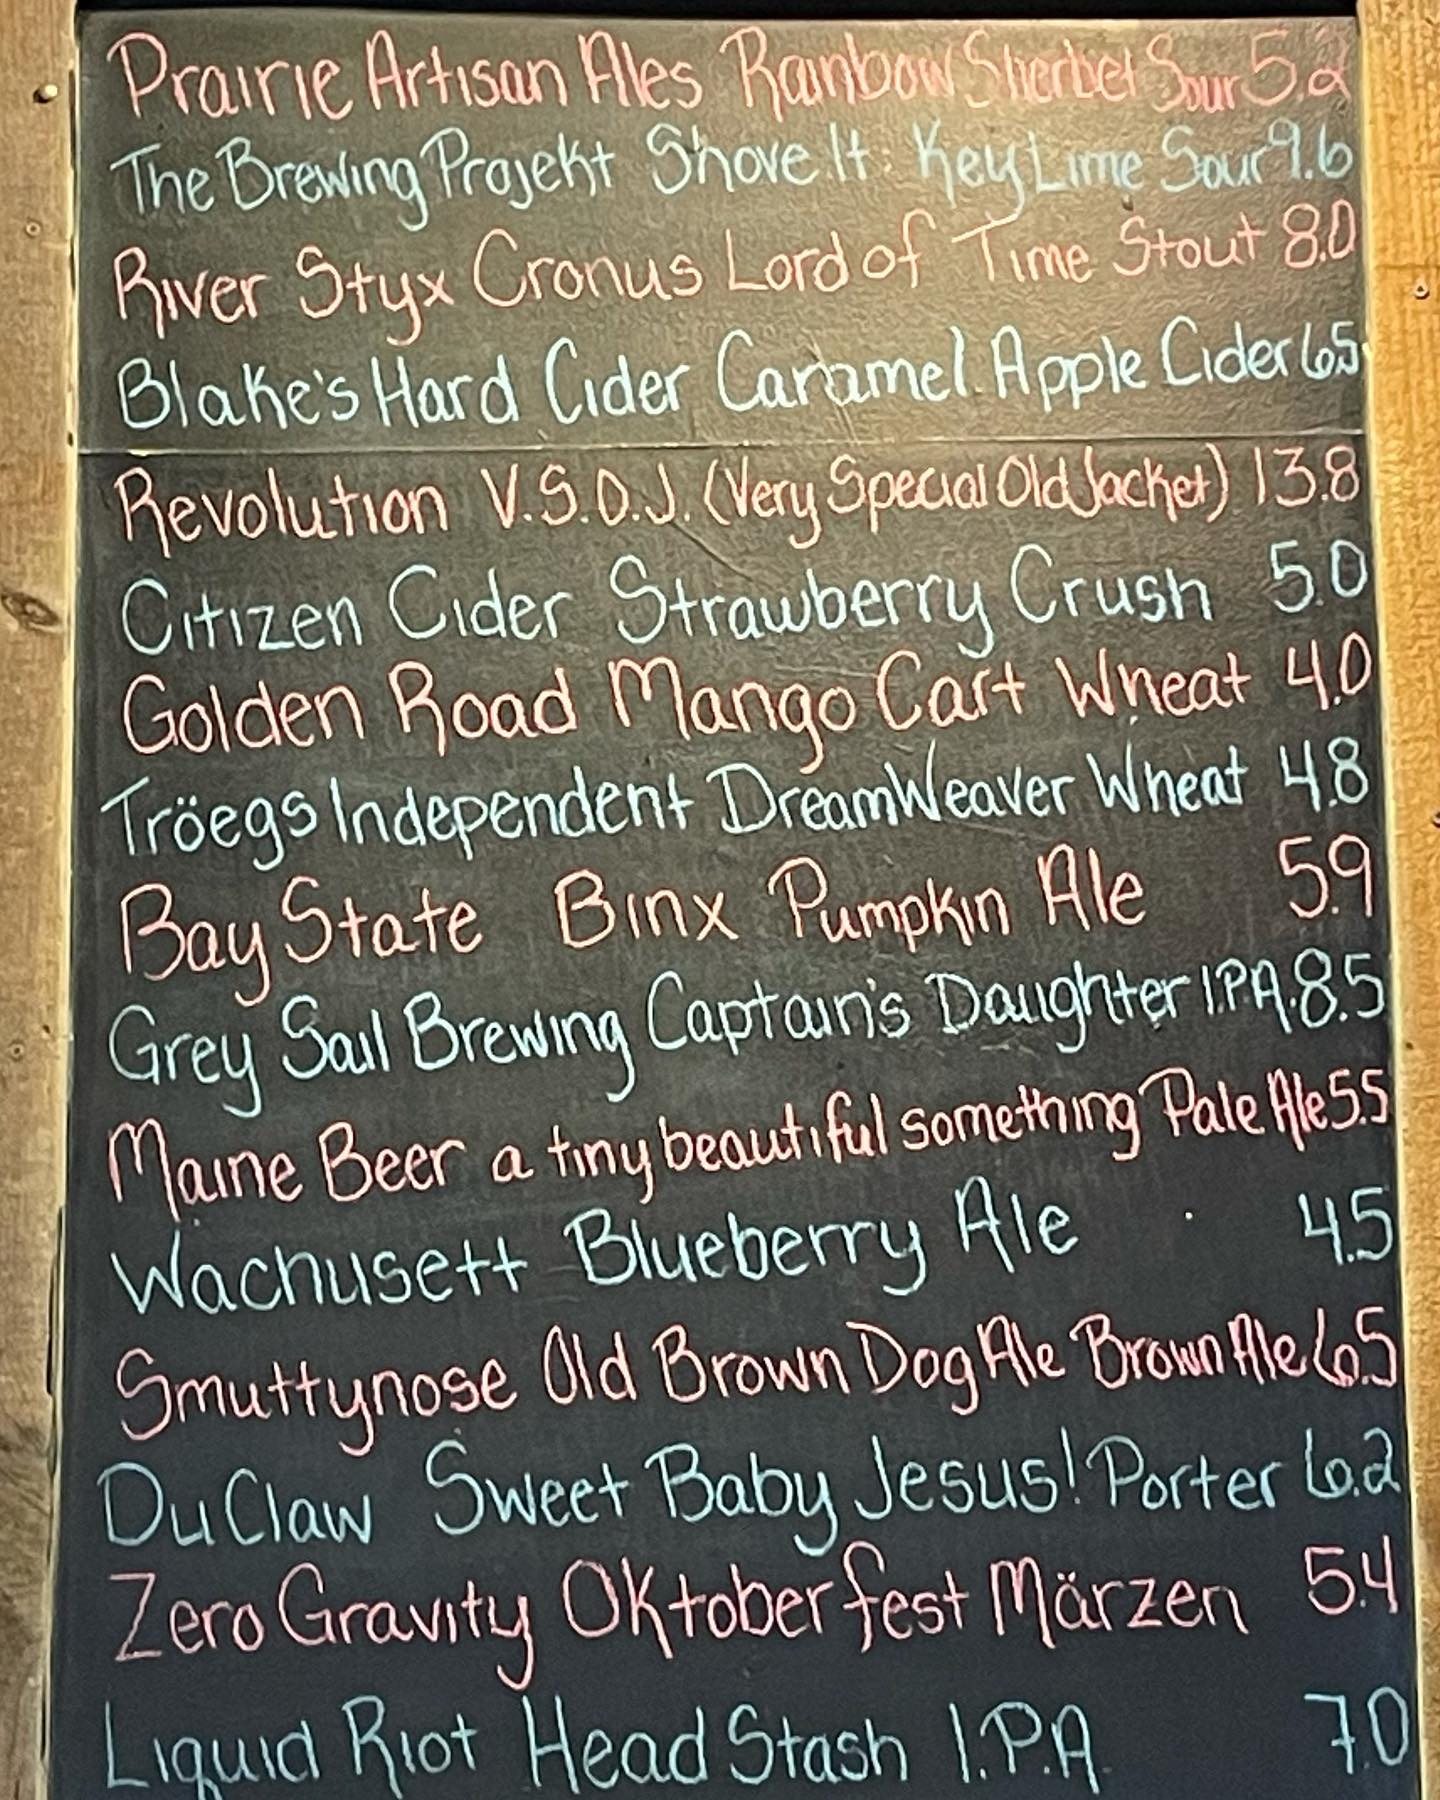 Prairie Artisan Ales Rainbow Sherbet Sour 5.2
The Brewing Projekt Shove It: Key Lime Sour 9.6
River Styx Cronus Lord of Time Stout 8.0
Blake's Hard Cider Caramel Apple Cider 6.5
Revolution V.S.O.J. (Very Special Old Jacket) 13.8
Citizen Cider Strawberry Crush 5.0
Golden Road Mango Cart Wheat 4.0
Tröegs Independent DreamWeaver Wheat 4.8
Bay State Binx Pumpkin Ale 5.9
Grey Sail Brewing Captain's Daughter I.P.A. 8.5
Maine Beer a tiny beautiful something Pale Ale 5.5
Wachusett Blueberry Ale 4.5
Smuttynose Old Brown Dog Ale Brown Ale 6.5
DuClaw Sweet Baby Jesus! Porter 6.2
Zero Gravity Oktoberfest Märzen 5.4
Liquid Riot Head Stash I.P.A 7.0